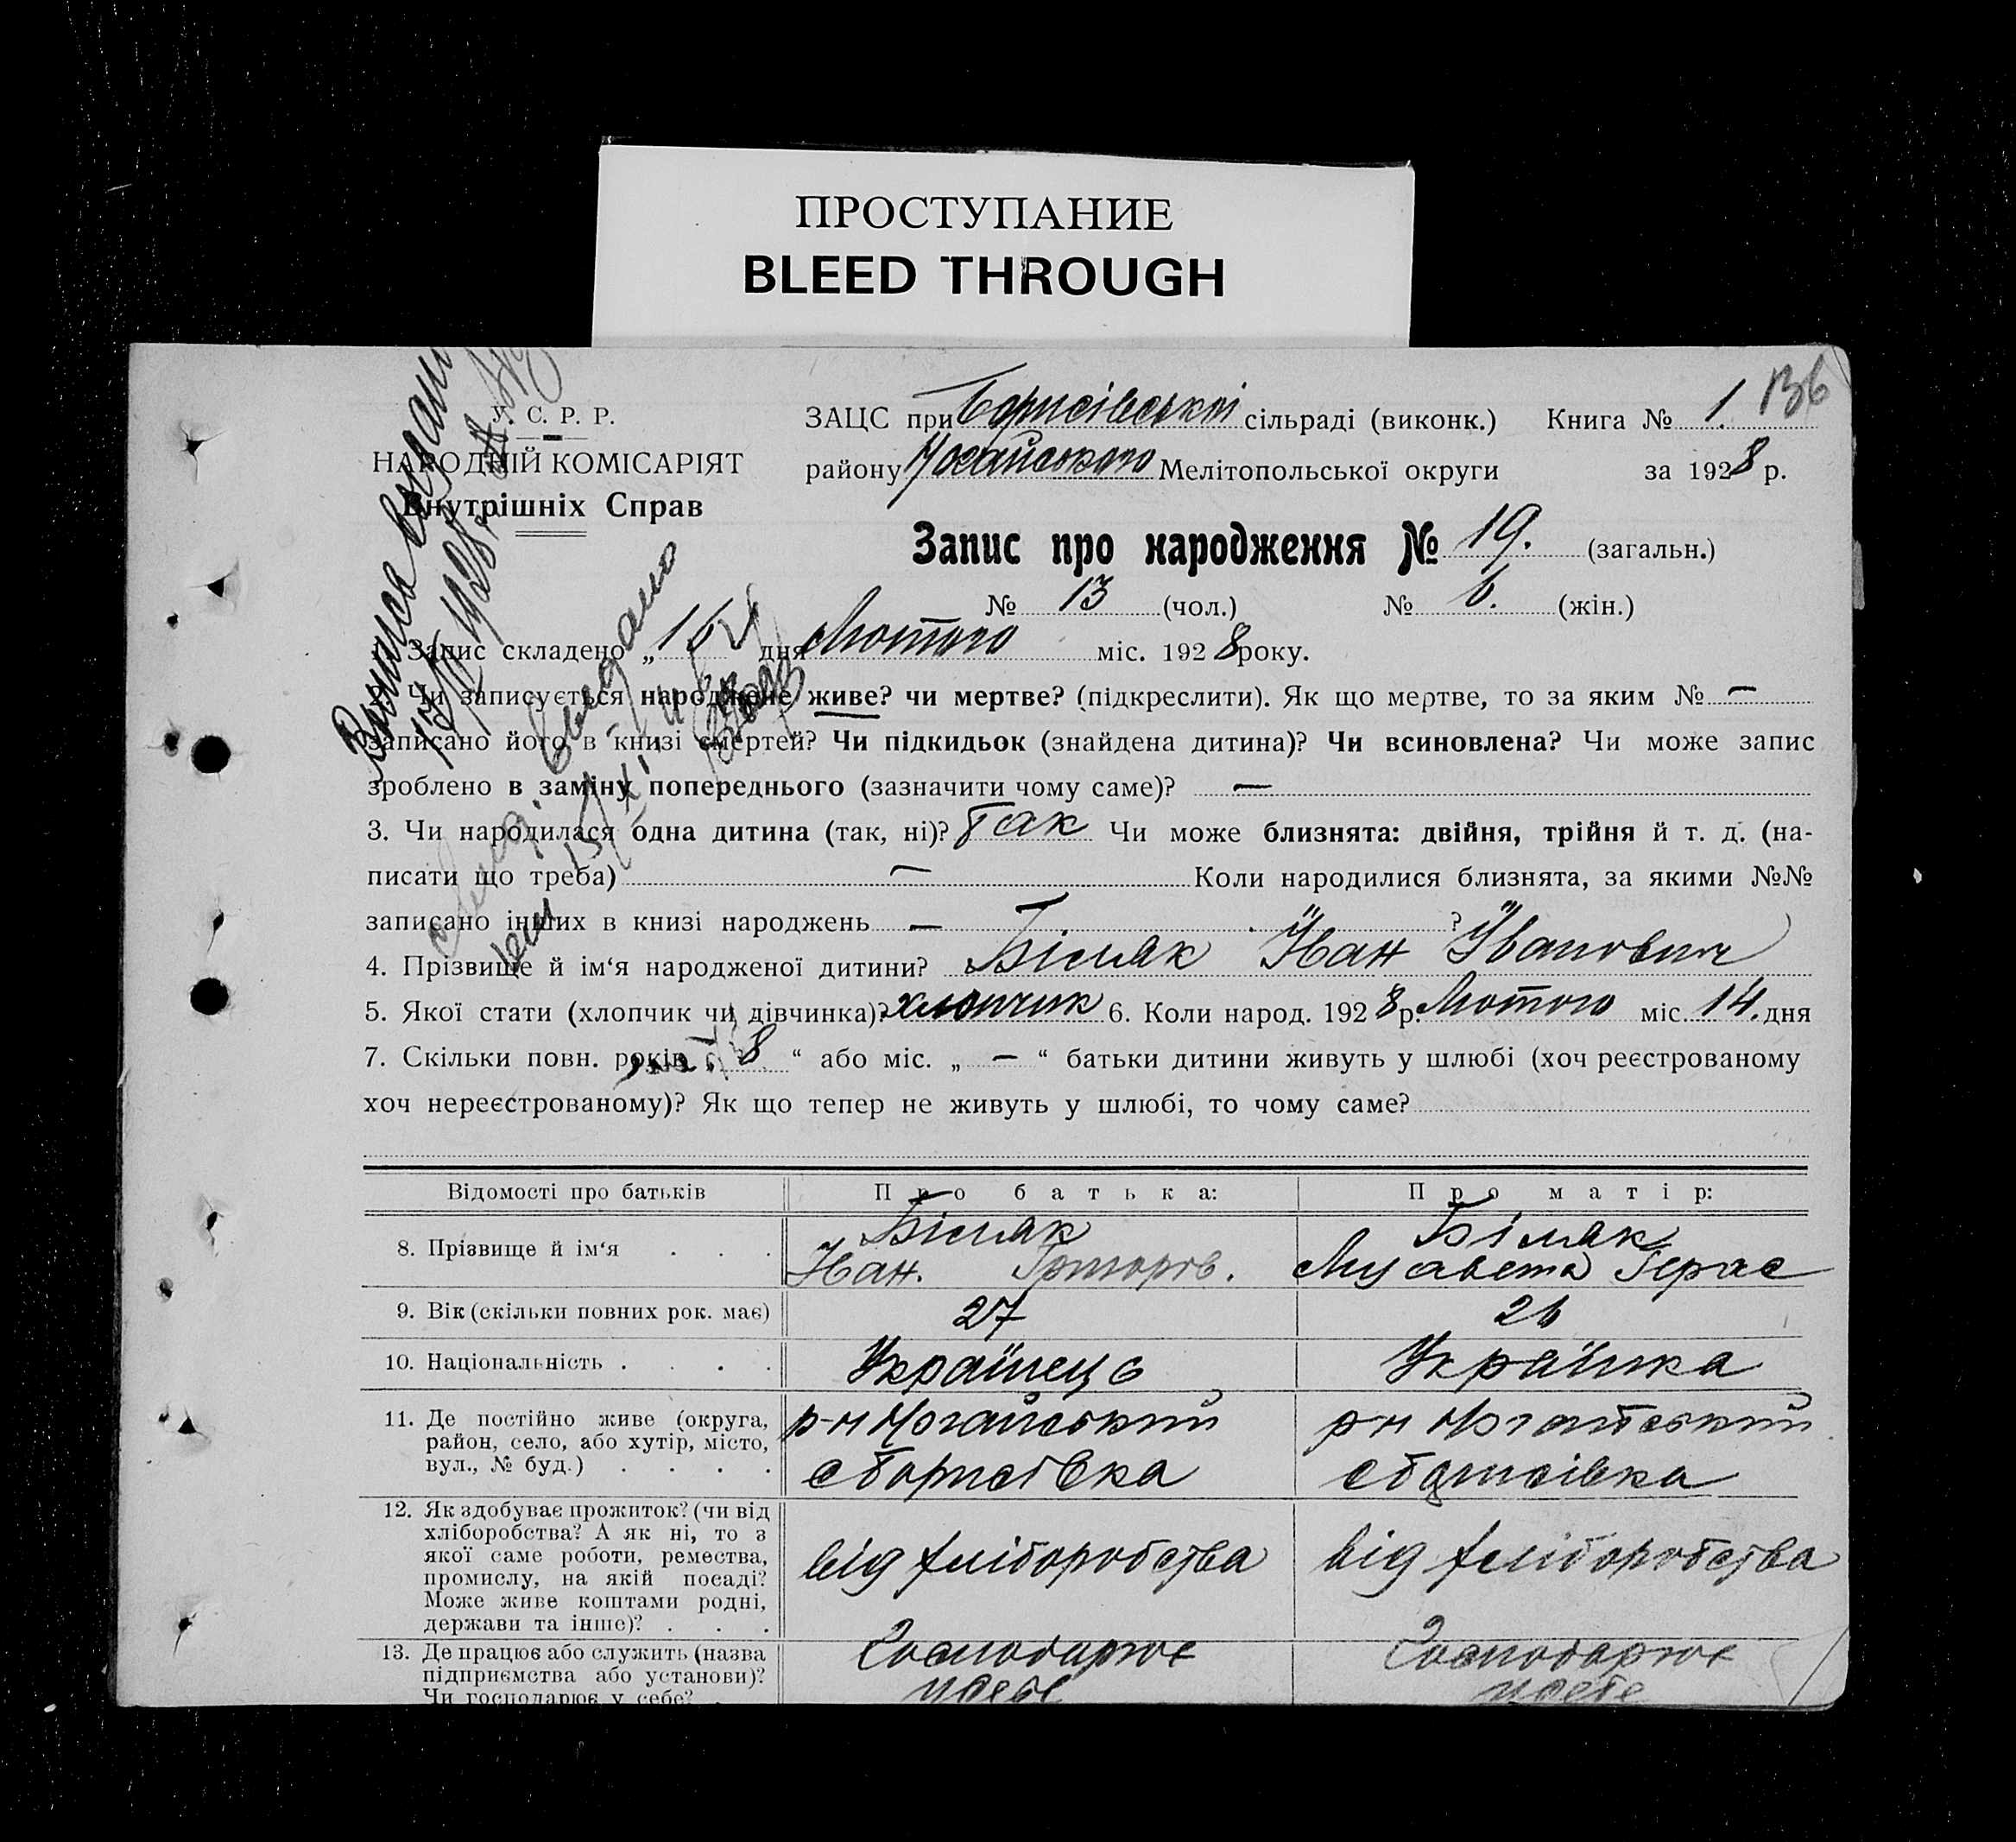 ПРОСТУПАНИЕ
BLEED THROUGH
136
У. С. Р. Р.
НАРОДНІЙ КОМІСАРІЯТ
Внутрішніх Справ
ЗАЦС при Борисівській сільраді (виконк.) Книга № 1.
району Ногайського Мелітопольської округи за 1928 р.
Запис про народження № 19. (загальн.)
№ 13 (чол.) № 6. (жін.)
Запис складено „16 дня Лютого міс. 1928 року.
Чи записується народжене живе? чи мертве? (підкреслити). Як що мертве, то за яким № —
записано його в книзі смертей? Чи підкидьок (знайдена дитина)? Чи всиновлена? Чи може запис
зроблено в заміну попереднього (зазначити чому саме)? —
3. Чи народилася одна дитина (так, ні)? Так Чи може близнята: двійня, трійня й т. д. (на-
писати що треба) — Коли народилися близнята, за якими №№
записано інших в книзі народжень — ?
4. Прізвище й ім‘я народженої дитини? Біляк Йван Йванович
5. Якої стати (хлопчик чи дівчинка)? хлопчик 6. Коли народ. 1928 р. Лютого міс. 14. дня
7. Скільки повн. років „ 8 “ або міс. „ — “ батьки дитини живуть у шлюбі (хоч реєстрованому
хоч нереєстрованому)? Як що тепер не живуть у шлюбі, то чому саме?
Відомості про батьків Про батька: Про матір:
8. Прізвище й ім‘я . . . Біляк Біляк
Йван. Григоров. Лизавета Герас
9. Вік (скільки повних рок. має) 27 26
10. Національність . . . . Українець Українка
11. Де постійно живе (округа, р-н Ногайський р-н Ногайський
район, село, або хутір, місто,
вул., № буд.) . . . . с Борисівка с Борисівка
12. Як здобуває прожиток? (чи від
хліборобства? А як ні, то з
якої саме роботи, ремества, від хліборобства від хліборобства
промислу, на якій посаді?
Може живе коштами родні,
держави та інше)? . . .
13. Де працює або служить (назва Господарює Господарює
підприємства або установи)?
Чи господарює у себе? . у себе у себе